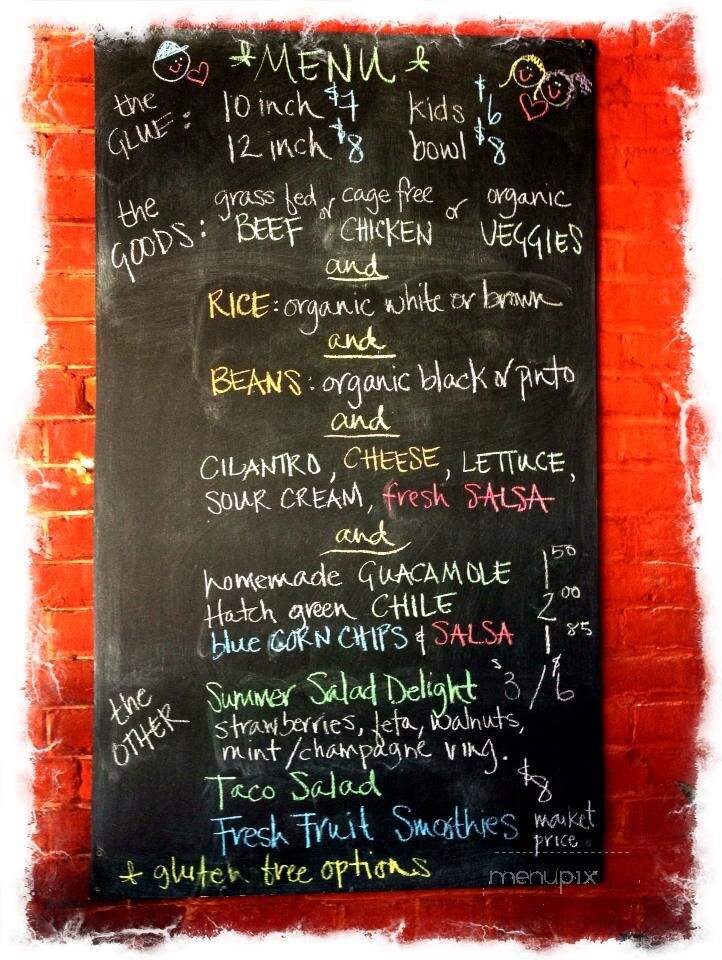 * MENU *
the GLUE: 10 inch $7 kids $6
12 inch $8 bowl $8
the GOODS: grass fed BEEF or cage free CHICKEN or organic VEGGIES
and
RICE: organic white or brown
and
BEANS: organic black or pinto
and
CILANTRO, CHEESE, LETTUCE,
SOUR CREAM, fresh SALSA
and
homemade GUACAMOLE 1 50
Hatch green CHILE 2 00
blue CORN CHIPS & SALSA 1 85
the OTHER Summer Salad Delight $3/$6
strawberries, feta, walnuts,
mint/champagne ving.
Taco Salad $8
Fresh Fruit Smoothies market price
* gluten free options
menupix